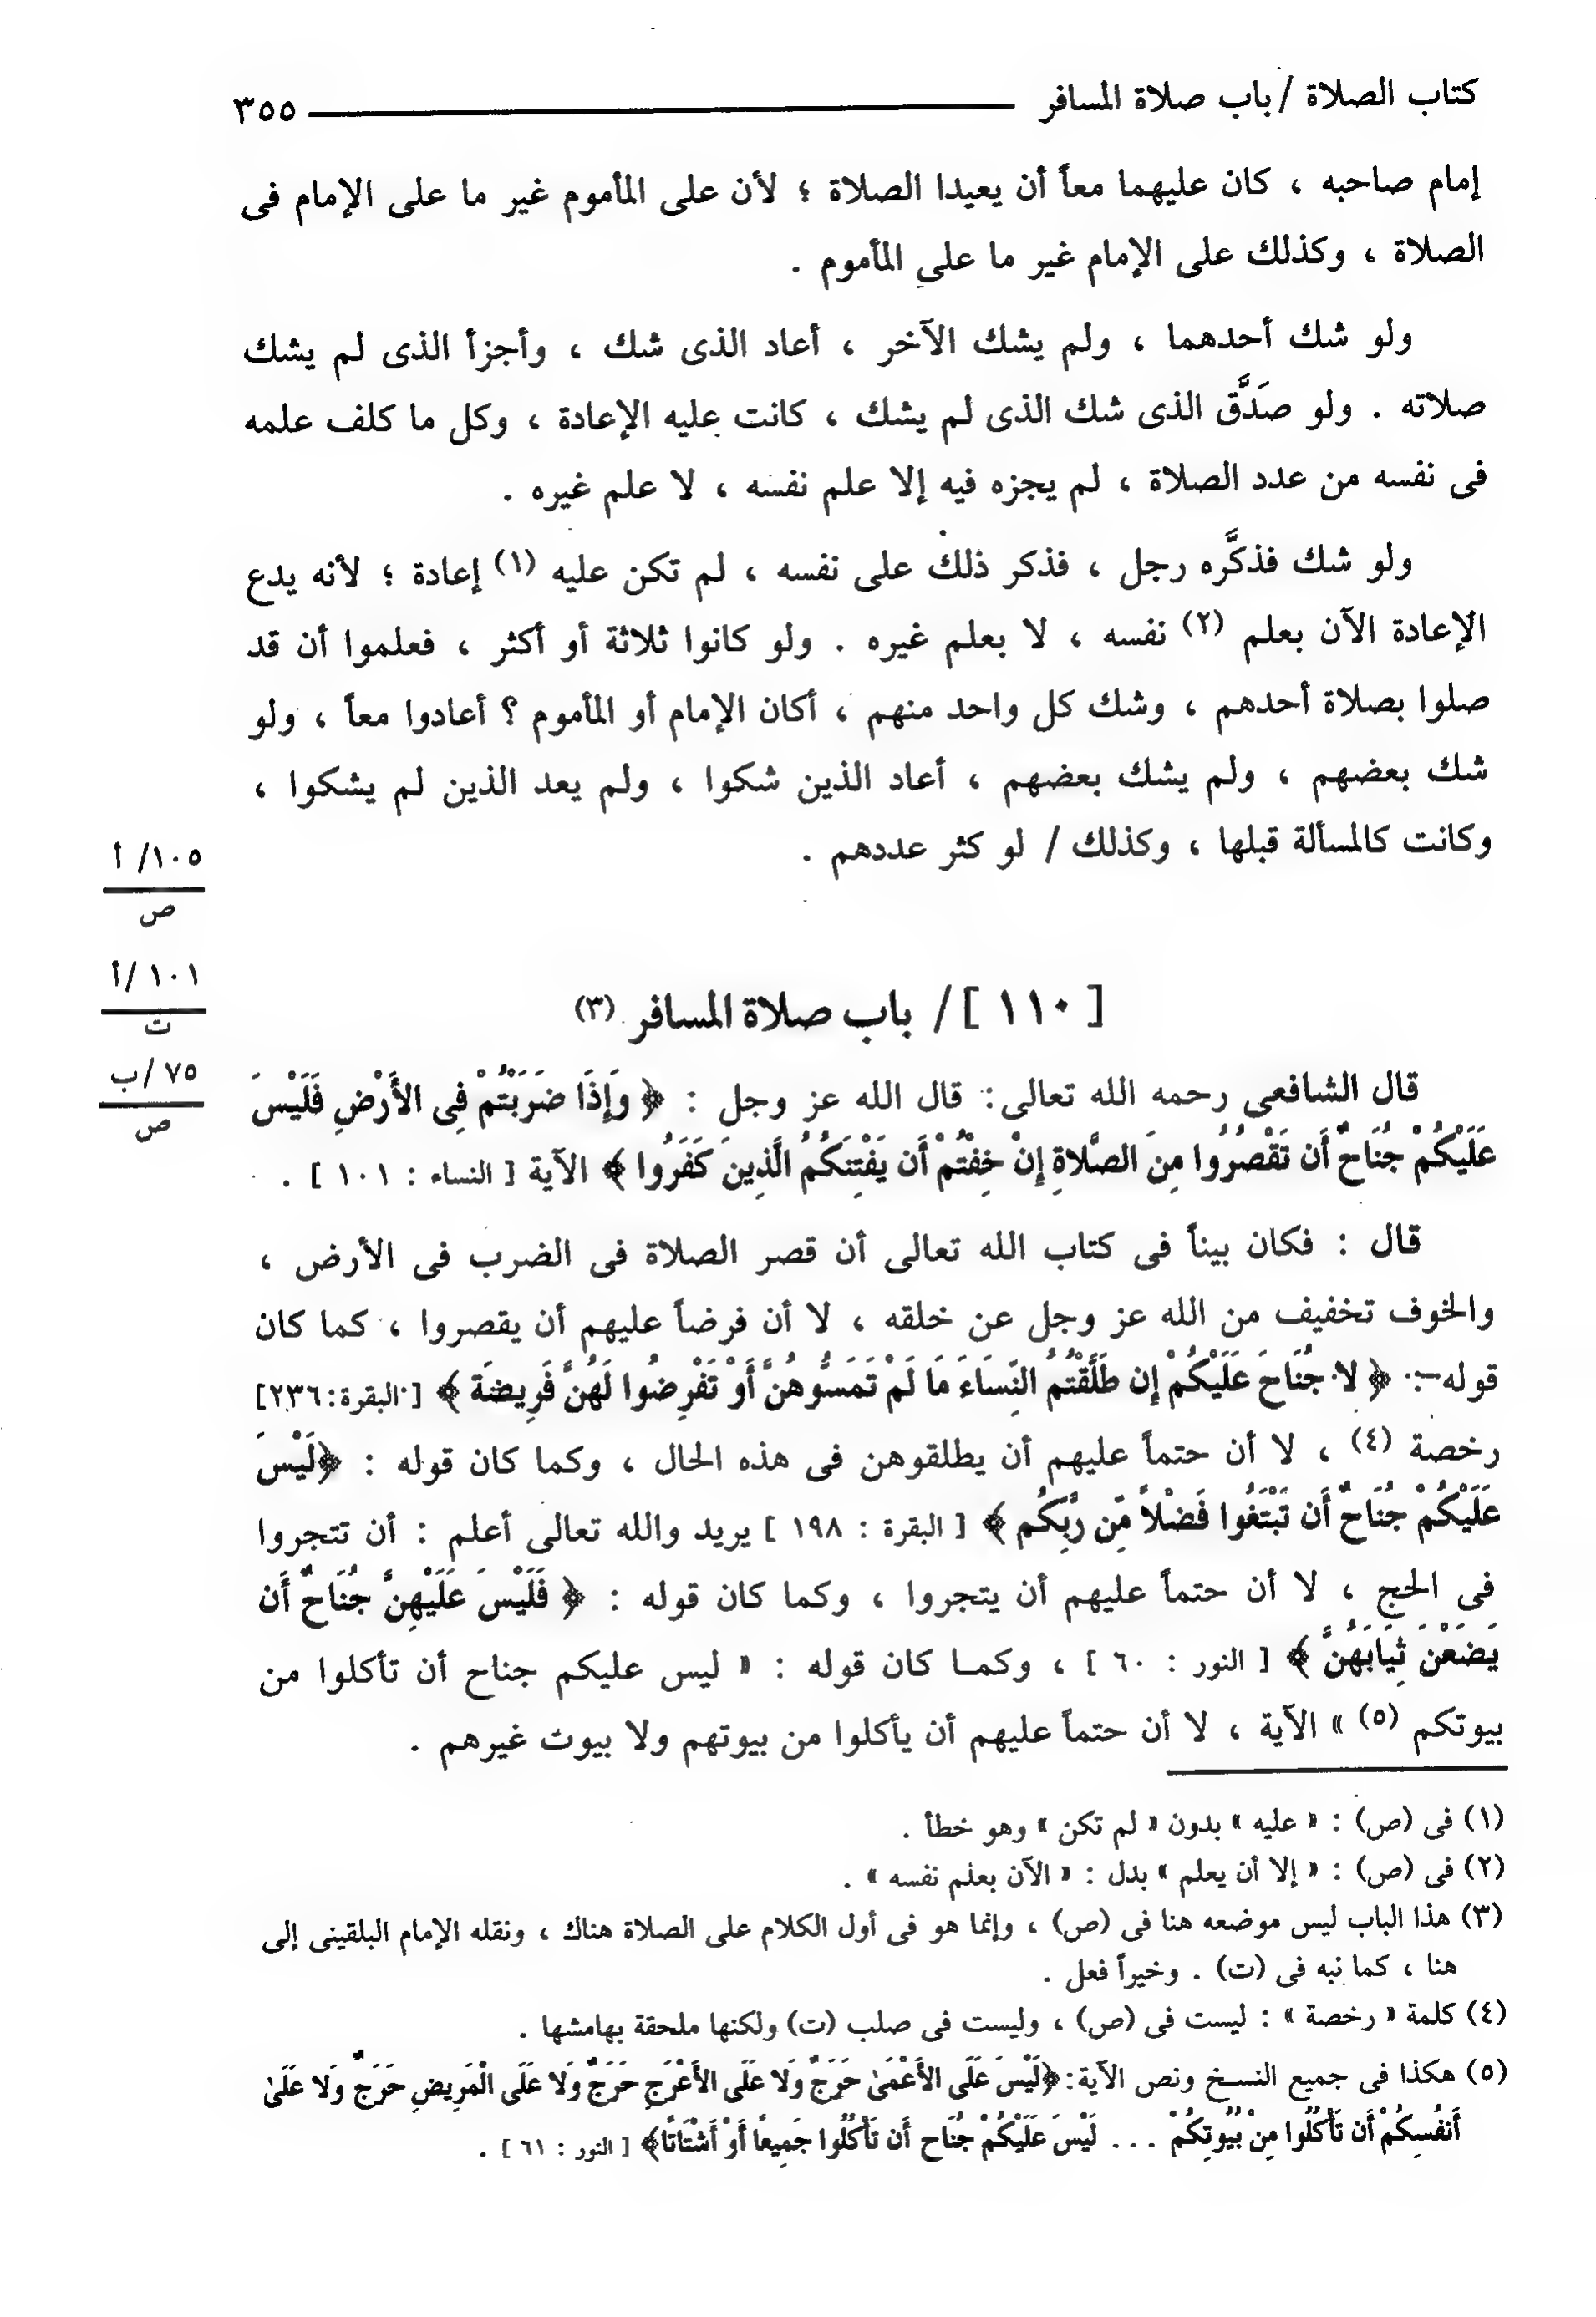 كتاب الصلاة / باب صلاة المسافر ٣٥٥
إمام صاحبه ، كان عليهما معاً أن يعيدا الصلاة ؛ لأن على المأموم غير ما على الإمام فى
الصلاة ، وكذلك على الإمام غير ما على المأموم .
ولو شك أحدهما ، ولم يشك الآخر ، أعاد الذى شك ، وأجزأ الذى لم يشك
صلاته . ولو صَدَّق الذى شك الذى لم يشك ، كانت عليه الإعادة ، وكل ما كلف علمه
فى نفسه من عدد الصلاة ، لم يجزه فيه إلا علم نفسه ، لا علم غيره .
ولو شك فذكَّره رجل ، فذكر ذلك على نفسه ، لم تكن عليه (١) إعادة ؛ لأنه يدع
الإعادة الآن بعلم (٢) نفسه ، لا بعلم غيره . ولو كانوا ثلاثة أو أكثر ، فعلموا أن قد
صلوا بصلاة أحدهم ، وشك كل واحد منهم ، أكان الإمام أو المأموم ؟ أعادوا معاً ، ولو
شك بعضهم ، ولم يشك بعضهم ، أعاد الذين شكوا ، ولم يعد الذين لم يشكوا ،
وكانت كالمسألة قبلها ، وكذلك / لو كثر عددهم .
١٠٥/ أ
ص
١٠١ /أ
ت
[ ١١٠ ]/ باب صلاة المسافر (٣)
٧٥ /ب
ص
قال الشافعى رحمه الله تعالى : قال الله عز وجل : ﴿ وَإِذَا ضَرَبْتُمْ فِى الأَرْضِ فَلَيْسَ
عَلَيْكُمْ جُنَاحٌ أَن تَقْصُرُوا مِنَ الصَّلاةِ إِنْ خِفْتُمْ أَن يَفْتِنَكُمُ الَّذِينَ كَفَرُوا ﴾ الآية [ النساء : ١٠١ ] .
قال : فكان بيناً فى كتاب الله تعالى أن قصر الصلاة فى الضرب فى الأرض ،
والخوف تخفيف من الله عز وجل عن خلقه ، لا أن فرضاً عليهم أن يقصروا ، كما كان
قوله : ﴿ لا جُنَاحَ عَلَيْكُمْ إِن طَلَّقْتُمُ النِّسَاءَ مَا لَمْ تَمَسُّوهُنَّ أَوْ تَفْرِضُوا لَهُنَّ فَرِيضَةً ﴾ [ البقرة:٢٣٦]
رخصة (٤) ، لا أن حتماً عليهم أن يطلقوهن فى هذه الحال ، وكما كان قوله : ﴿لَيْسَ
عَلَيْكُمْ جُنَاحٌ أَن تَبْتَغُوا فَضْلاً مِّن رَّبِّكُم ﴾ [ البقرة : ١٩٨ ] يريد والله تعالى أعلم : أن تتجروا
فى الحج ، لا أن حتماً عليهم أن يتجروا ، وكما كان قوله : ﴿ فَلَيْسَ عَلَيْهِنَّ جُنَاحٌ أَن
يَضَعْنَ ثِيَابَهُنَّ ﴾ [ النور : ٦٠ ] ، وكما كان قوله : « ليس عليكم جناح أن تأكلوا من
بيوتكم (٥) » الآية ، لا أن حتماً عليهم أن يأكلوا من بيوتهم ولا بيوت غيرهم .
(١) فى (ص) : « عليه » بدون « لم تكن » وهو خطأ .
(٢) فى (ص) : « إلا أن يعلم » بدل : « الآن بعلم نفسه » .
(٣) هذا الباب ليس موضعه هنا فى (ص) ، وإنما هو فى أول الكلام على الصلاة هناك ، ونقله الإمام البلقينى إلى
هنا ، كما نبه فى (ت) . وخيراً فعل .
(٤) كلمة « رخصة » : ليست فى (ص) ، وليست فى صلب (ت) ولكنها ملحقة بهامشها .
(٥) هكذا فى جميع النسخ ونص الآية: ﴿لَيْسَ عَلَى الأَعْمَىٰ حَرَجٌ وَلا عَلَى الأَعْرَجِ حَرَجٌ وَلا عَلَى الْمَرِيضِ حَرَجٌ وَلا عَلَىٰ
أَنفُسِكُمْ أَن تَأْكُلُوا مِنْ بُيُوتِكُمْ ... لَيْسَ عَلَيْكُمْ جُنَاح أَن تَأْكُلُوا جَمِيعاً أَوْ أَشْتَاتًا﴾ [ النور : ٦١ ] .